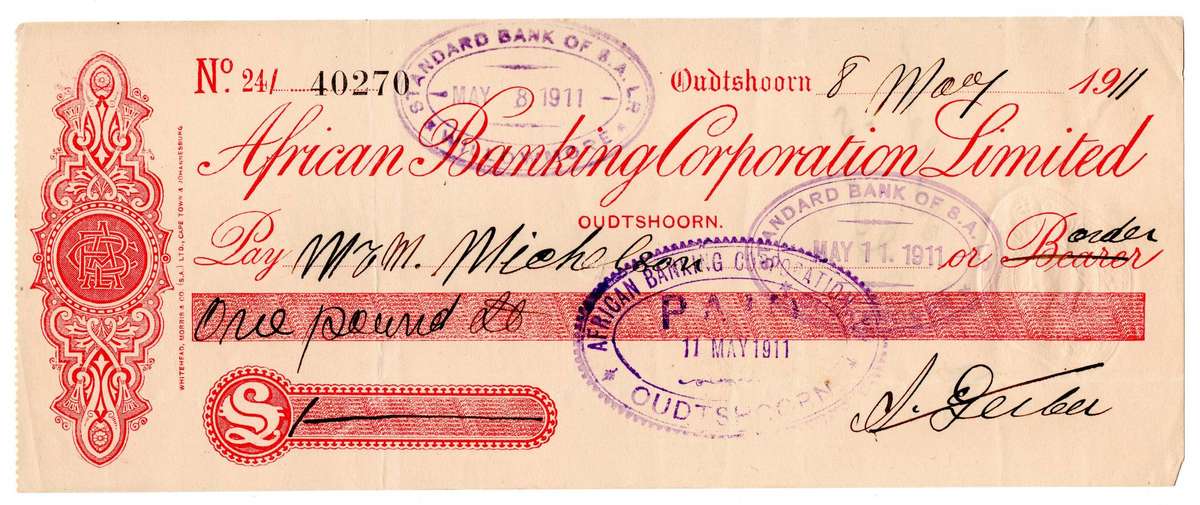 No 24/ 40270
Oudtshoorn 8 May 1911
STANDARD BANK OF S.A. LD
MAY 8 1911
African Banking Corporation Limited
OUDTSHOORN.
Pay Mr M. Michelson or Bearer order
STANDARD BANK OF S.A. LD
MAY 11 1911
One pound
AFRICAN BANKING CORPORATION
PAID
11 MAY 1911
OUDTSHOORN
£ 1
WHITEHEAD, MORRIS & CO. (S.A.) LTD., CAPE TOWN & JOHANNESBURG